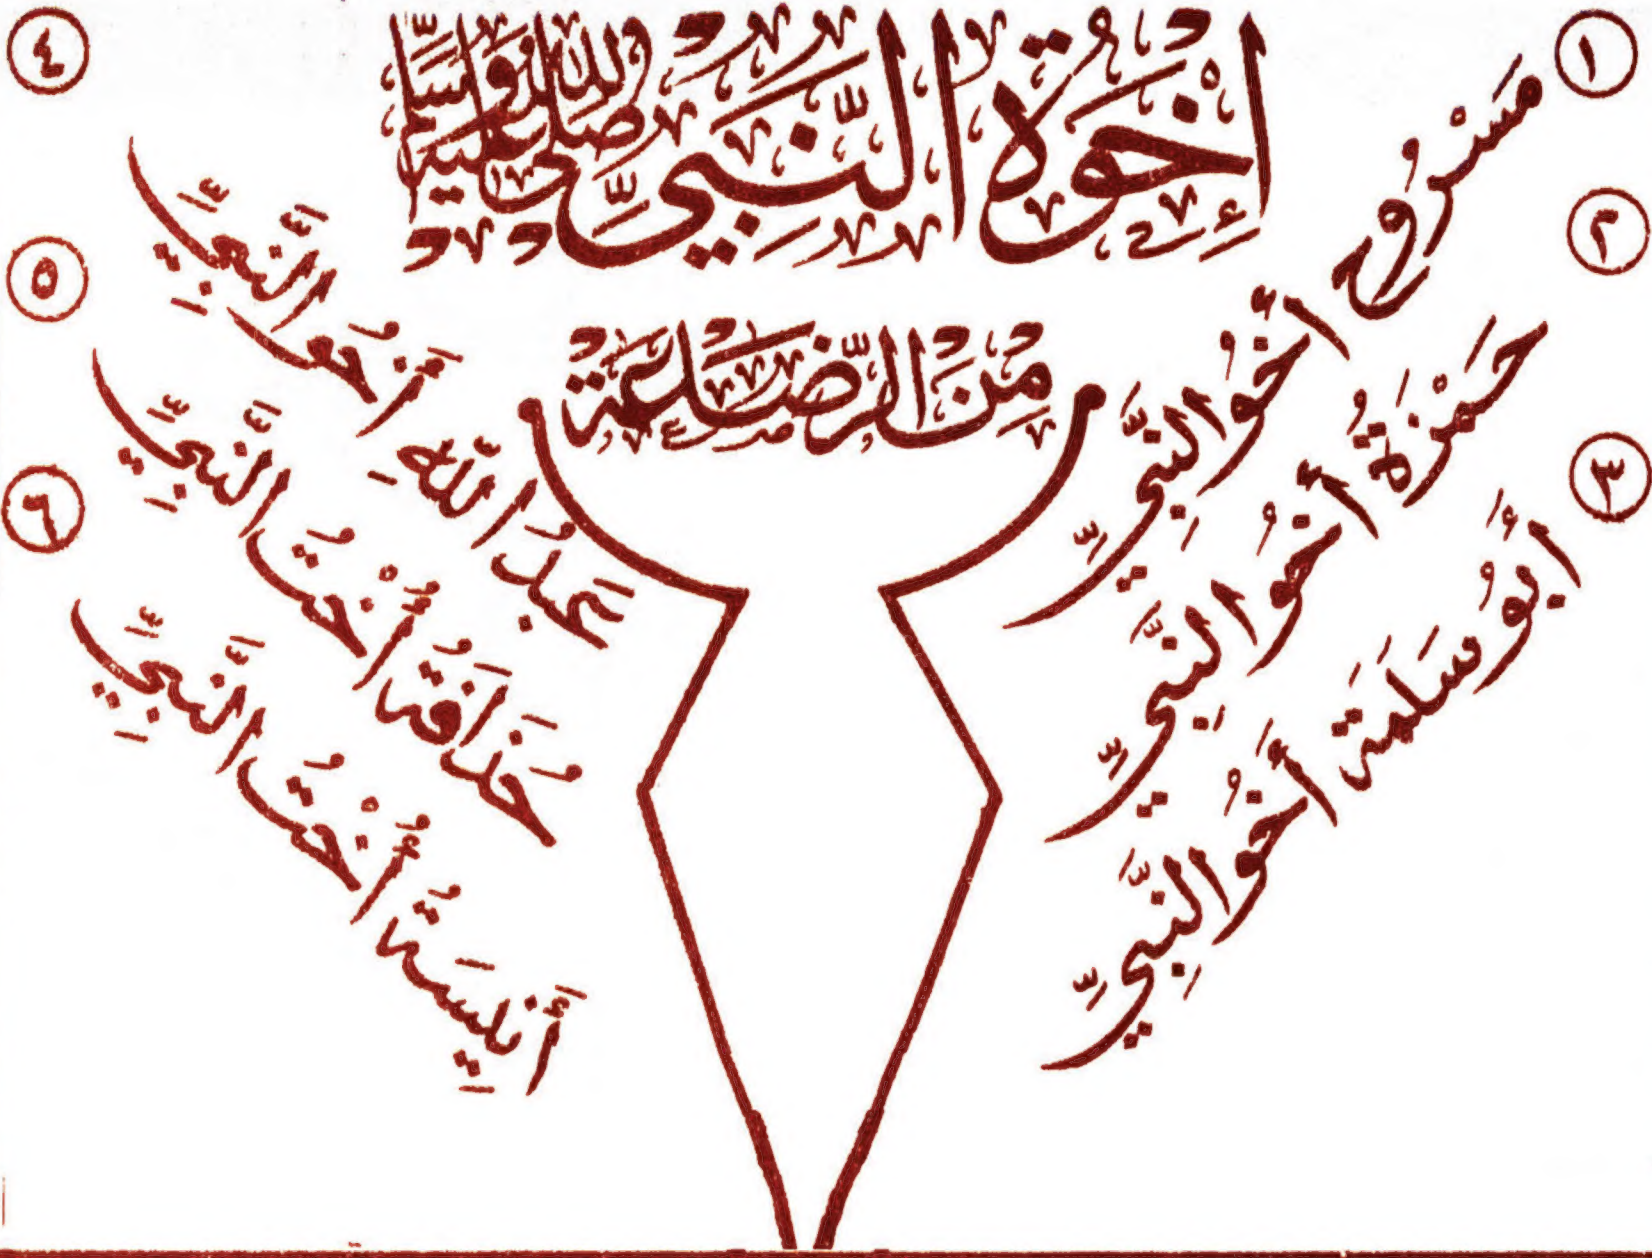 إِخْوَةُ النَّبِيِّ صَلَّى اللهُ عَلَيْهِ وَسَلَّمَ
مِنَ الرَّضَاعَةِ
١
مَسْرُوْح أَخُو النَّبِيِّ
٢
حَمْزَةُ أَخُو النَّبِيِّ
٣
أَبُو سَلَمَة أَخُو النَّبِيِّ
٤
عَبْدُ اللّٰهِ أَخُو النَّبِيِّ
٥
حُذَافَةُ أُخْتُ النَّبِيِّ
٦
أَنِيسَةُ أُخْتُ النَّبِيِّ